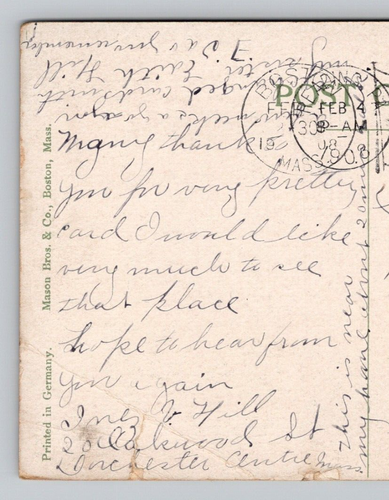 Many thanks
you for very pretty
card I would like
very much to see
that place
hope to hear from
you again
Inez V Hill
Oakwood St
Dorchester Centre Mass.
This is near
my home about 20 min
my sister Edith Hill
POST
BOSTON
FEB 4
MASS.
1908
Printed in Germany. Mason Bros. & Co., Boston, Mass.